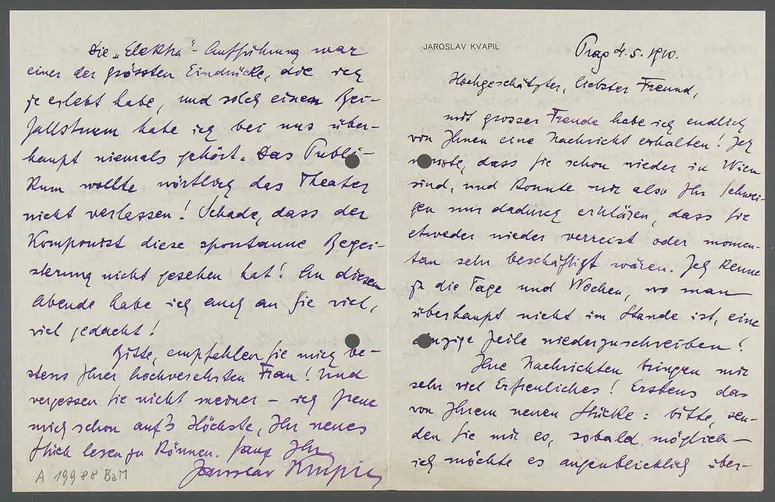 JAROSLAV KVAPIL
Prag 4.5.1910.
Hochgeschätzter, liebster Freund,
mit grosser Freude habe ich endlich
von Ihnen eine Nachricht erhalten! Ich
wusste, dass Sie schon wieder in Wien
sind, und konnte mir also Ihr Schwei-
gen nur dadurch erklären, dass Sie
etweder wieder verreist oder momen-
tan sehr beschäftigt wären. Ich kenne
ja die Tage und Wochen, wo man
überhaupt nicht im Stande ist, eine
einzige Zeile niederzuschreiben!
Ihre Nachrichten bringen mir
sehr viel Erfreuliches! Erstens das
von Ihrem neuen Stücke: bitte, sen-
den Sie mir es, sobald möglich –
ich möchte es augenblicklich über-
Die „Elektra“-Aufführung war
einer der grössten Eindrücke, die ich
je erlebt habe, und solch einen Bei-
fallssturm habe ich bei uns über-
haupt niemals gehört. Das Publi-
kum wollte wörtlich das Theater
nicht verlassen! Schade, dass der
Komponist diese spontanne Begei-
sterung nicht gesehen hat! An diesem
Abende habe ich auch an Sie viel,
viel gedacht!
Bitte, empfehlen Sie mich be-
stens Ihrer hochverehrten Frau! Und
vergessen Sie nicht meiner – ich freue
mich schon auf's Höchste, Ihr neues
Stück lesen zu können. Ganz Ihr
Jaroslav Kvapil
A 19988 BaM